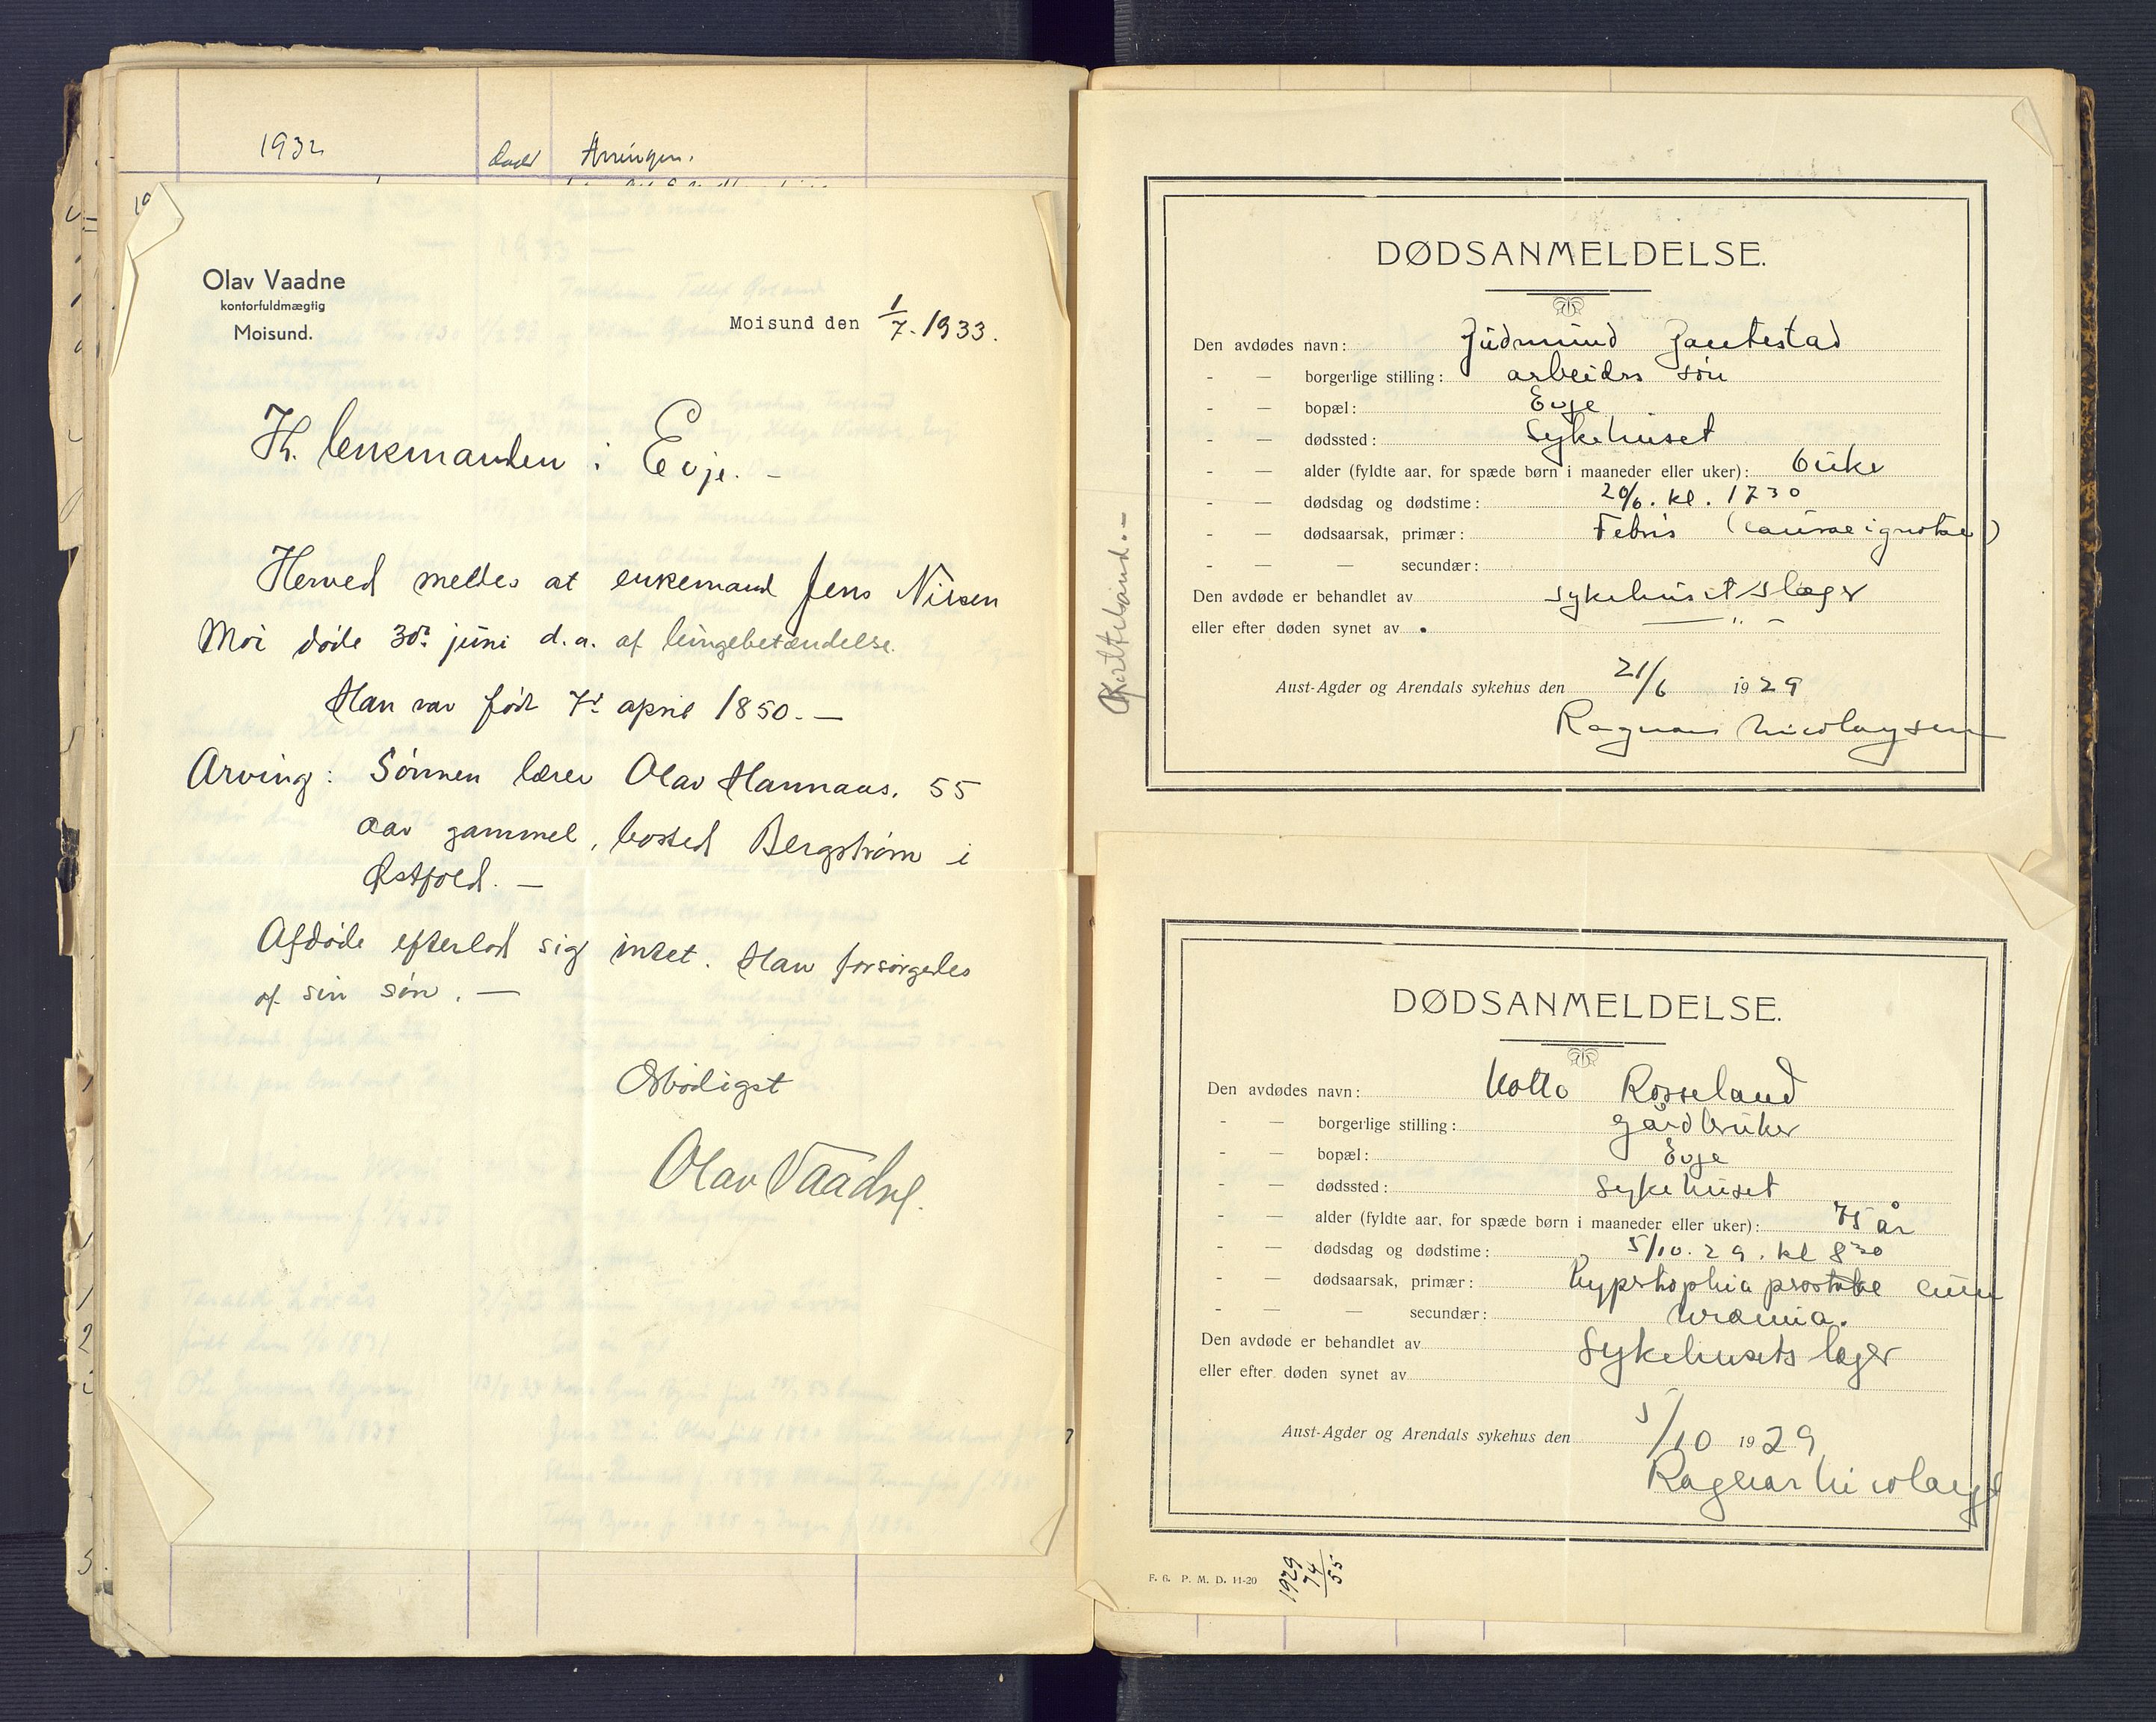 1932
død
Arvinger.
Olav Vaadne
kontorfuldmægtig
Moisund.
Moisund den 1/7. 1933.
Hr. lensmanden i Evje. -
Herved meldes at enkemand Jens Nilsen
Moi døde 30te juni d.a. af lungebetændelse.
Han var født 7de april 1850. —
Arving: Sønnen lærer Olav Hannaas, 55
aar gammel, bosted Bergstrøm i
Østfold. —
Afdøde efterlod sig intet. Han forsørgedes
af sin søn. —
Ærbødigst
Olav Vaadne.
DØDSANMELDELSE.
Den avdødes navn: Gudmund Gautestad
- — borgerlige stilling: arbeiders søn
- — bopæl: Evje
- — dødssted: Sykehuset
- — alder (fyldte aar, for spæde børn i maaneder eller uker): 6 uker
- — dødsdag og dødstime: 20/6. kl. 17 30
- — dødsaarsak, primær: Febris (causae ignotae)
- — — secundær:
Den avdøde er behandlet av sykehusets læger
eller efter døden synet av — " —
Aust-Agder og Arendals sykehus den 21/6 1929
Ragnar Nicolaysen
DØDSANMELDELSE.
Den avdødes navn: Rosseland
- — borgerlige stilling: gårdbruker
- — bopæl: Evje
- — dødssted: Sykehuset
- — alder (fyldte aar, for spæde børn i maaneder eller uker): 75 år
- — dødsdag og dødstime: 5/10. 29. kl 8 30
- — dødsaarsak, primær: Hypertrophia prostatae cum
- — — secundær: uraemia.
Den avdøde er behandlet av Sykehusets læger
eller efter døden synet av
Aust-Agder og Arendals sykehus den 5/10 1929
Ragnar Nicolays
F. 6. P. M. D. 11-20
1929
74
55